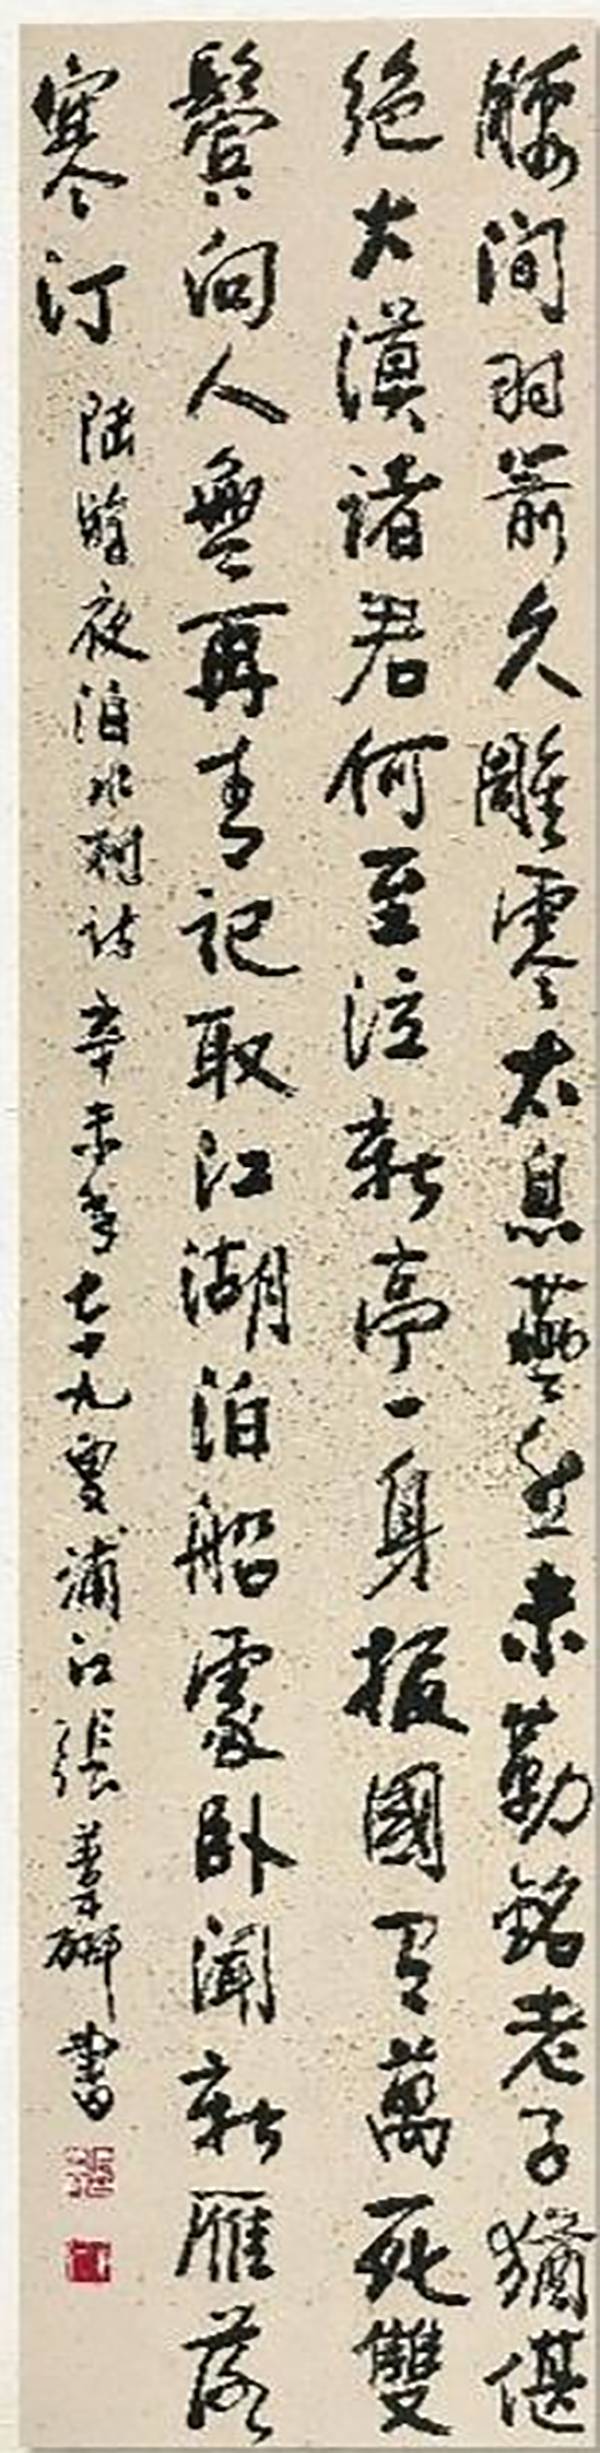 腰間羽箭久雕零太息燕然未勒銘老子猶堪
絕大漠諸君何至泣新亭一身報國有萬死雙
鬢向人無再青記取江湖泊船處卧聞新雁落
寒汀 陸游夜泊水村詩 辛未年七十九叟浦江張葦研書